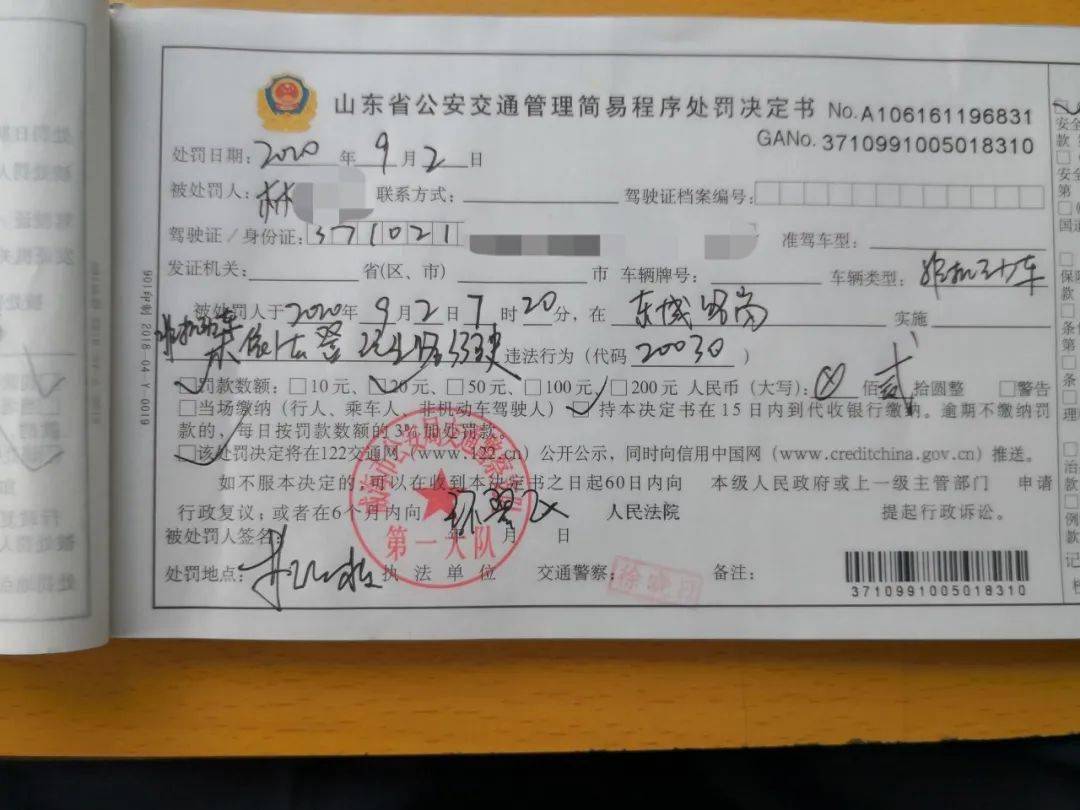 山东省公安交通管理简易程序处罚决定书 No.A106161196831
GANo. 3710991005018310
处罚日期：2020年9月2日
被处罚人：林 联系方式： 驾驶证档案编号：
驾驶证/身份证：371021 准驾车型：
发证机关： 省(区、市) 市 车辆牌号： 车辆类型：非机动车
被处罚人于2020年9月2日7时20分，在东城路岗实施
非机动车未依法登记上路行驶违法行为（代码20030）
罚款数额：10元、20元、50元、100元、200元 人民币（大写）：⊗佰贰拾圆整 警告
当场缴纳（行人、乘车人、非机动车驾驶人） 持本决定书在15日内到代收银行缴纳。逾期不缴纳罚
款的，每日按罚款数额的3%加处罚款。
该处罚决定将在122交通网（www.122.cn）公开公示，同时向信用中国网（www.creditchina.gov.cn）推送。
如不服本决定的，可以在收到本决定书之日起60日内向 本级人民政府或上一级主管部门 申请
行政复议；或者在6个月内向环翠区人民法院 提起行政诉讼。
被处罚人签名： 年 月 日
处罚地点： 执法单位 交通警察： 备注：
第一大队
3710991005018310
901印制 2018-04 Y-0019